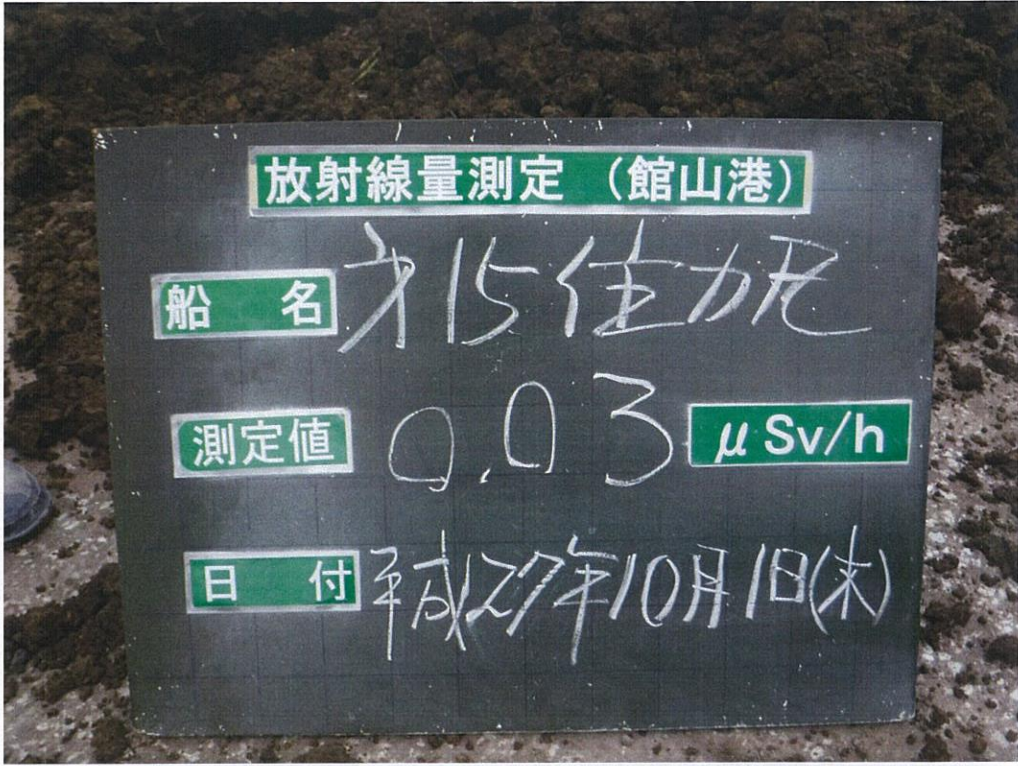 放射線量測定 (館山港)
船 名 才15住力丸
測定値 0.03 μSv/h
日 付 平成27年10月1日(木)